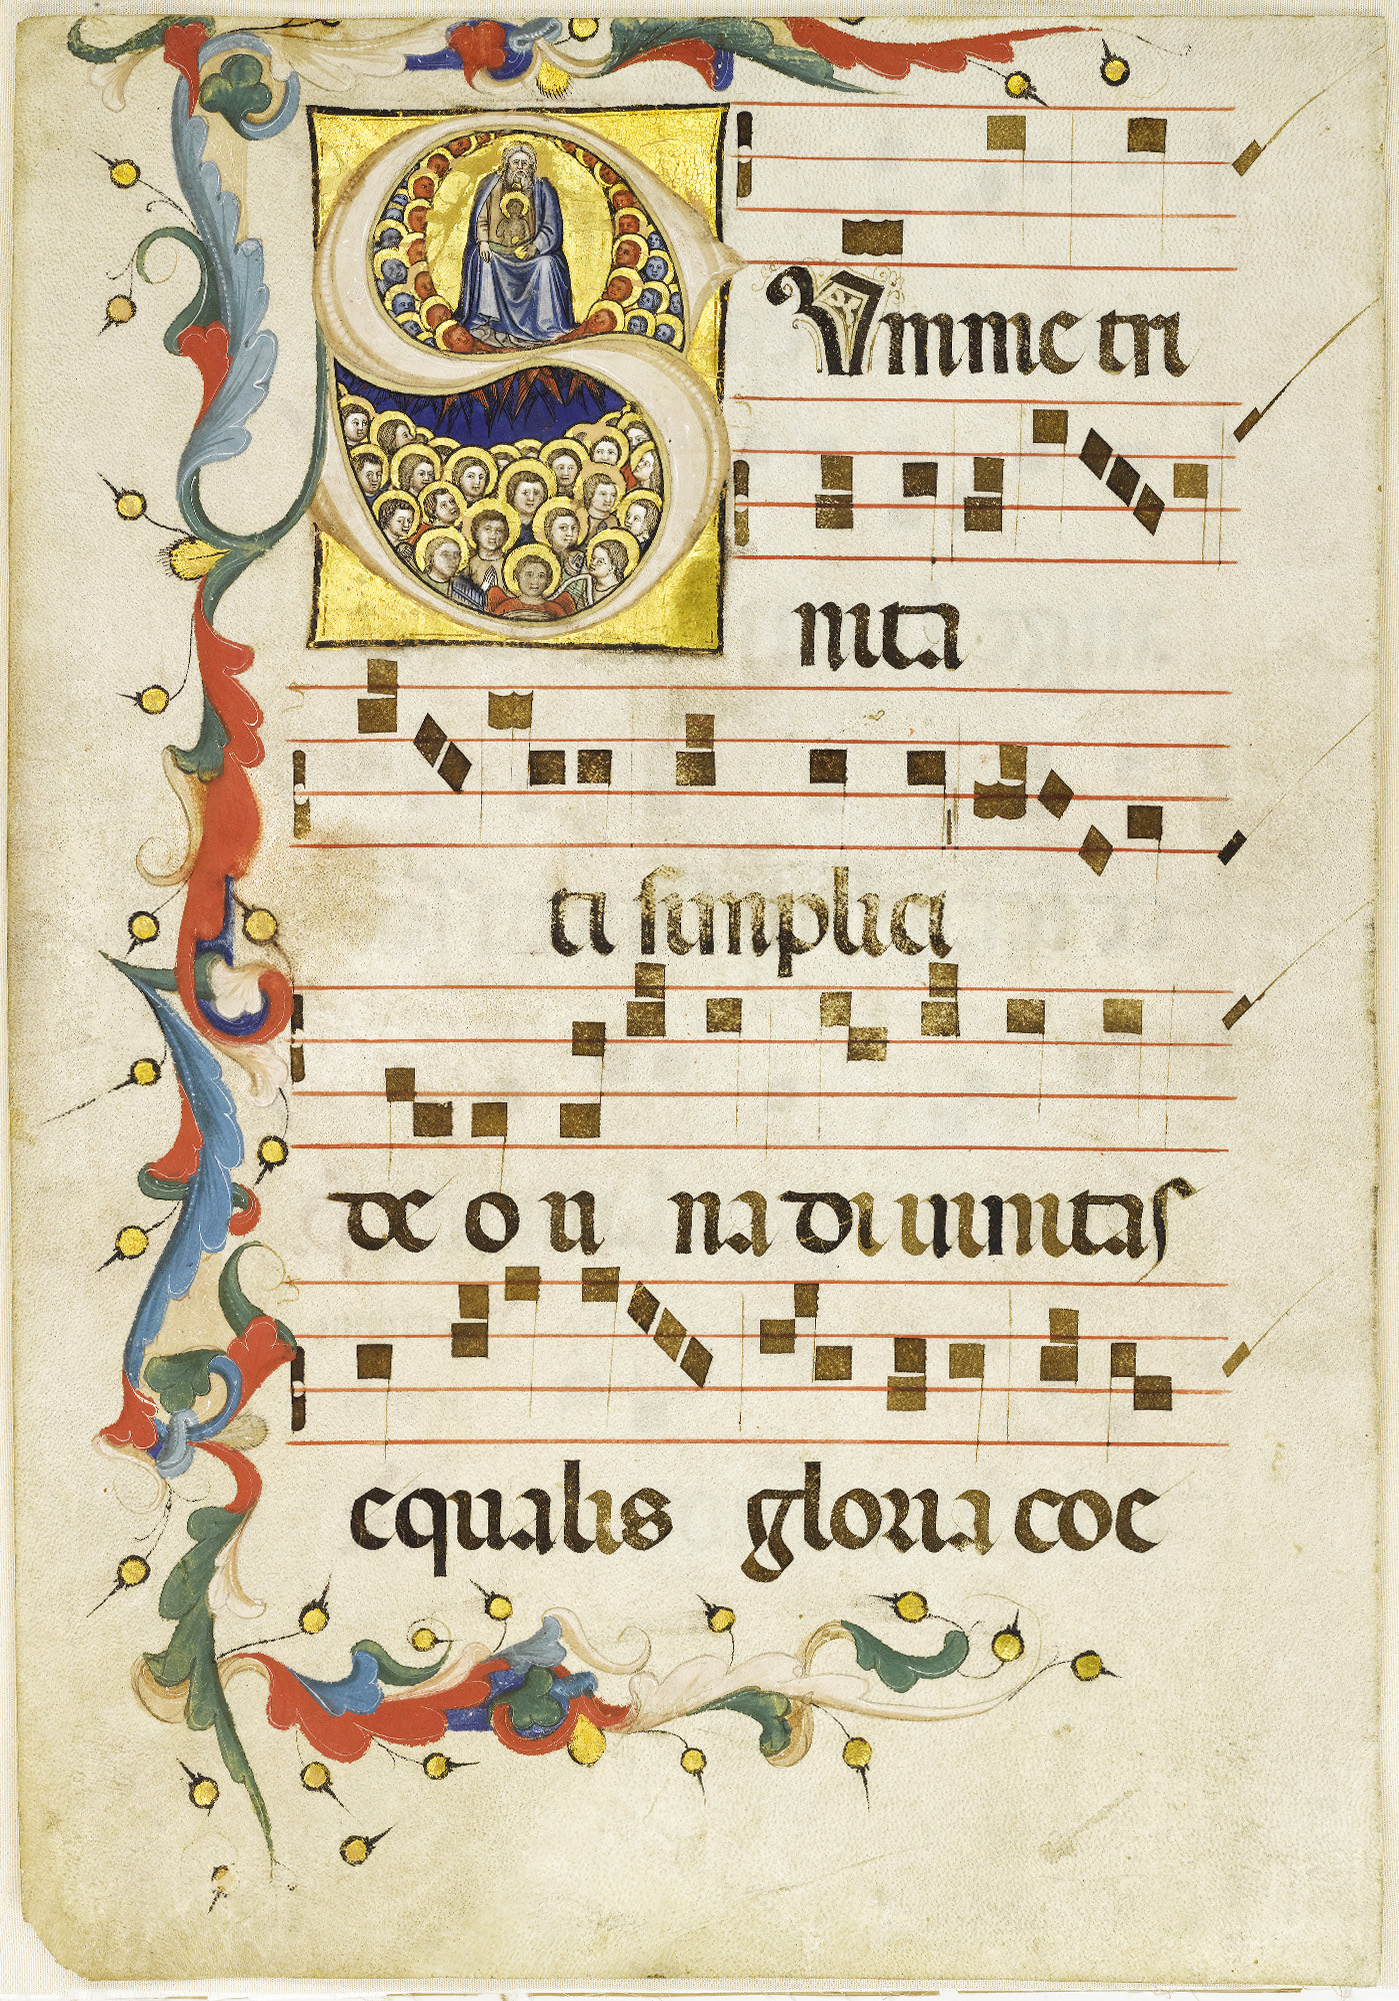 SUmme tri
nita
ti simplici
de o u na diuinitas
equalis gloria coe